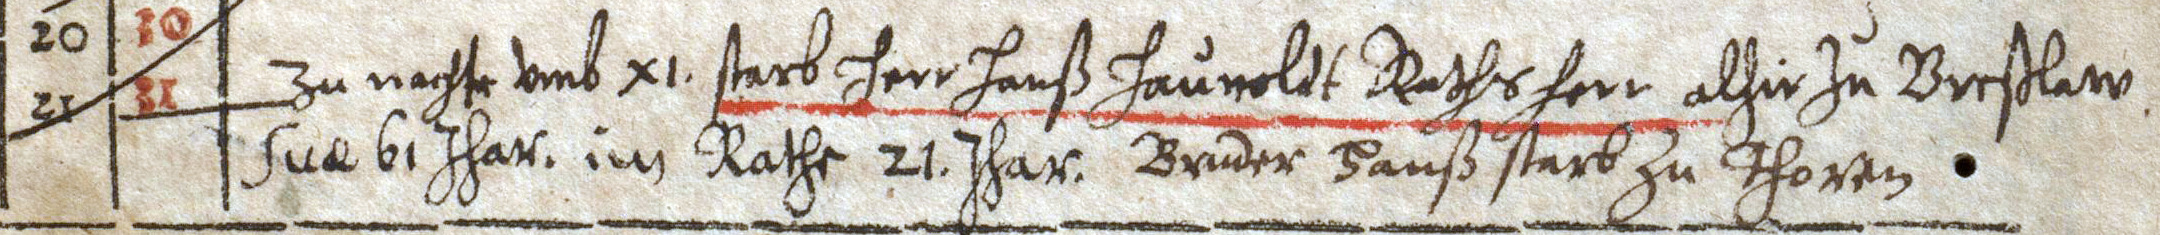 20 30
21 31 Zu nachte vmb XI. starb Herr Hanß Haunoldt Rathsherr alhir zu Breßlaw.
suæ 61 Jhar. im Rathe 21. Jhar. Bruder Hanß starb zu Thoren